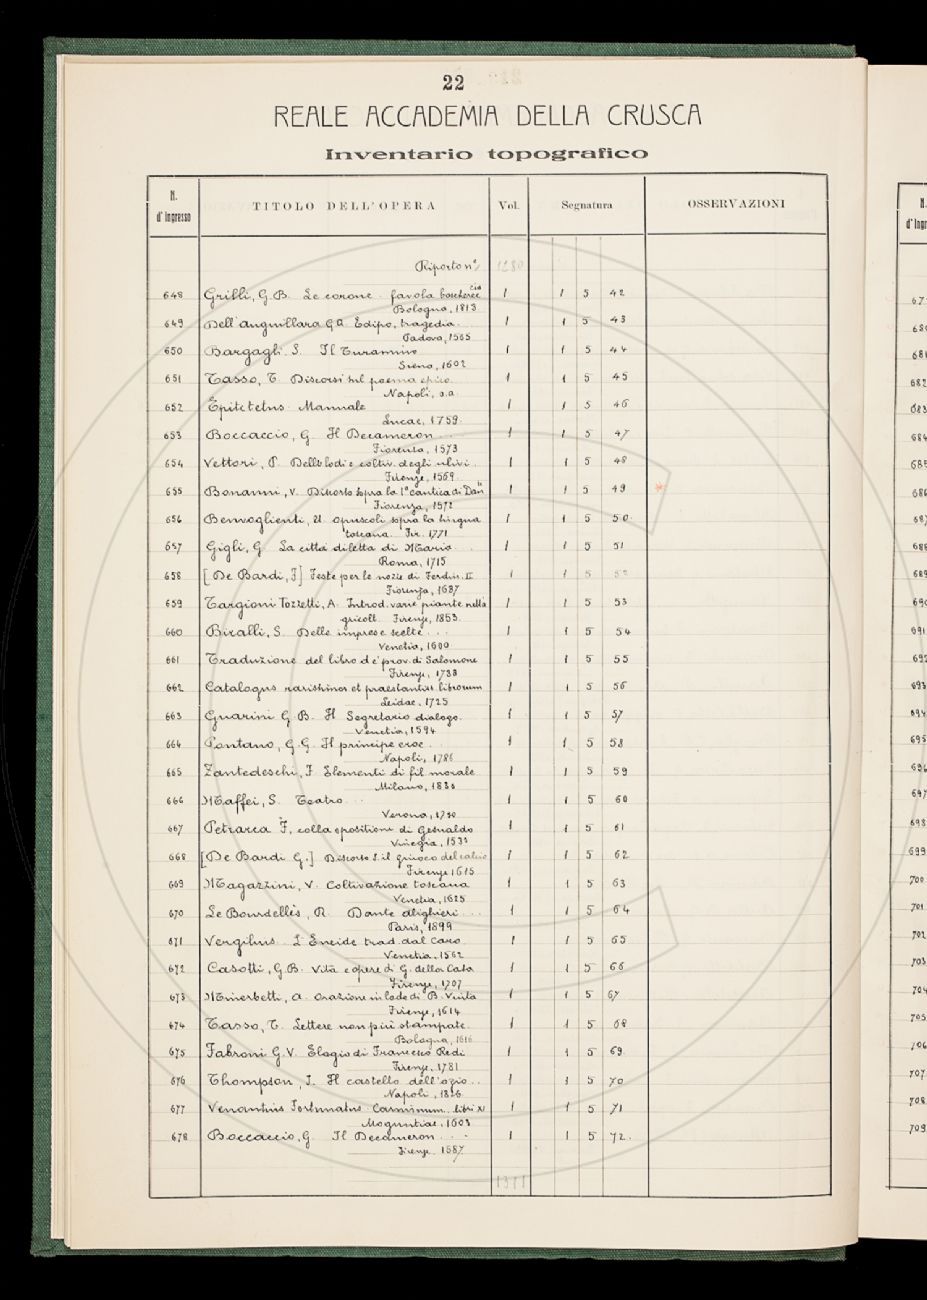 22
REALE ACCADEMIA DELLA CRUSCA
Inventario topografico
N. d'Ingresso TITOLO DELL'OPERA Vol. Segnatura OSSERVAZIONI
Riporto n° 1280
648 Grilli, G.B. Le corone. favola boschereccia 1 1 5 42
Bologna, 1813
649 Dell'Anguillara G.A. Edipo, tragedia. 1 1 5 43
Padova, 1565
650 Bargagli. S. Il Turamino 1 1 5 44
Siena, 1602
651 Tasso, T. Discorsi sul poema epico. 1 1 5 45
Napoli, s.a.
652 Epitetetus Mannale 1 1 5 46
Lucae, 1759.
653 Boccaccio, G. Il Decameron ... 1 1 5 47
Fiorenza, 1573
654 Vettori, P. Delle lodi e coltiv. degli ulivi. 1 1 5 48
Firenze, 1569.
655 Bonanni, V. Discorso sopra la 1ª cantica di Dan 1 1 5 49 *
Fiorenza, 1572
656 Benvoglienti, U. opuscoli sopra la lingua 1 1 5 50.
toscana. Fir. 1771
657 Gigli, G. La città diletta di Maria. 1 1 5 51
Roma, 1715
658 [De Bardi, F] Feste per le nozze di Ferdin. II 1 1 5 52
Fiorenza, 1637
659 Targioni Tozzetti, A. Introd. varie piante nella 1 1 5 53
gricolt. Firenze, 1853.
660 Biralli, S. Delle imprese scelte ... 1 1 5 54
Venetia, 1600
661 Traduzione del libro de' prov. di Salomone 1 1 5 55
Firenze, 1738
662 Catalogus rarishimor et praestantiss librorum 1 1 5 56
Leidae, 1725
663 Guarini G.B. Il Segretario dialogo. 1 1 5 57
Venetia, 1594
664 Pontano, G.G. Il principe eroe. 1 1 5 58
Napoli, 1786
665 Zantedeschi, F Elementi di fil morale 1 1 5 59
Milano,
666 Maffei, S. Teatro ... 1 1 5 60
Verona, 1730
667 Petrarca F, colla spositione di Gesualdo 1 1 5 61
Vinegia, 1533
668 [De Bardi G.] Discorso s. il giuoco del calcio 1 1 5 62
Firenze 1615
669 Magazzini, V. Coltivazione toscana 1 1 5 63
Venetia, 1625
670 Le Bourdellès, R. Dante Alighieri ... 1 1 5 64
Paris, 1899
671 Vergilius. L'Eneide trad. dal Caro. 1 1 5 65
Venetia, 1562
672 Casotti, G.B. Vita e opere di G. della Casa 1 1 5 66
Firenze, 1707
673 Minerbetti, A. Orazione in lode di B. Vinta 1 1 5 67
Firenze, 1614
674 Tasso, T. Lettere non più stampate. 1 1 5 68
Bologna, 1616
675 Fabroni G.V. Elogio di Francesco Redi 1 1 5 69
Firenze, 1781
676 Thompson, J. Il castello dell'ozio.. 1 1 5 70
Napoli, 1826
677 Venantius Fortunatus. Carminum. libri XI 1 1 5 71
Moguntiae, 1603
678 Boccaccio, G. Il Decameron ... 1 1 5 72.
Firenze 1587
1311